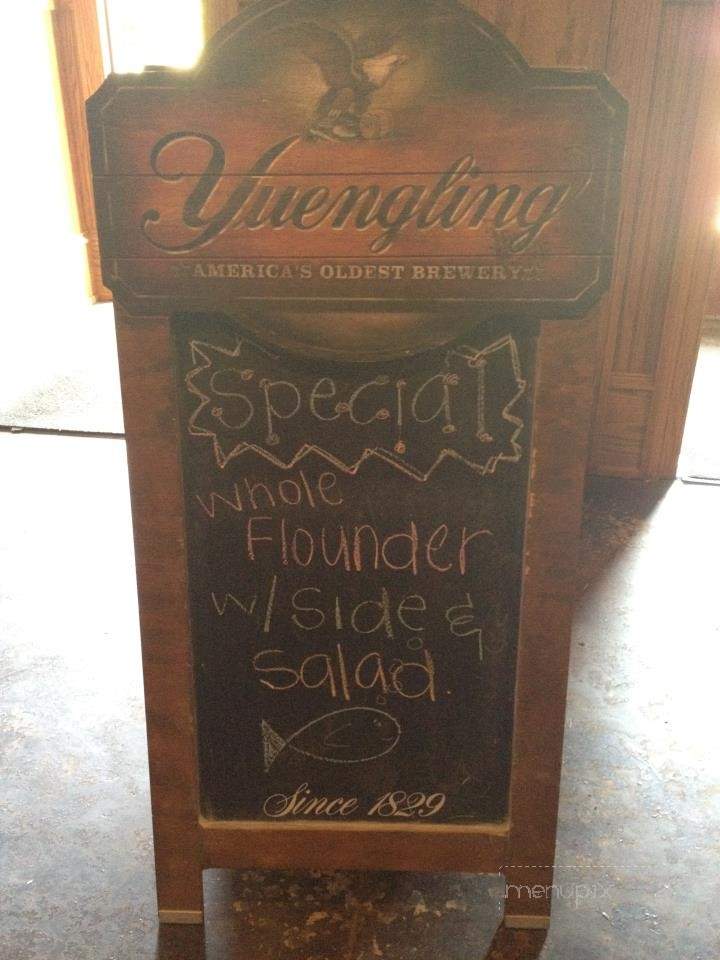 Yuengling
AMERICA'S OLDEST BREWERY
Special
whole
Flounder
w/side &
Salad.
Since 1829
menupix